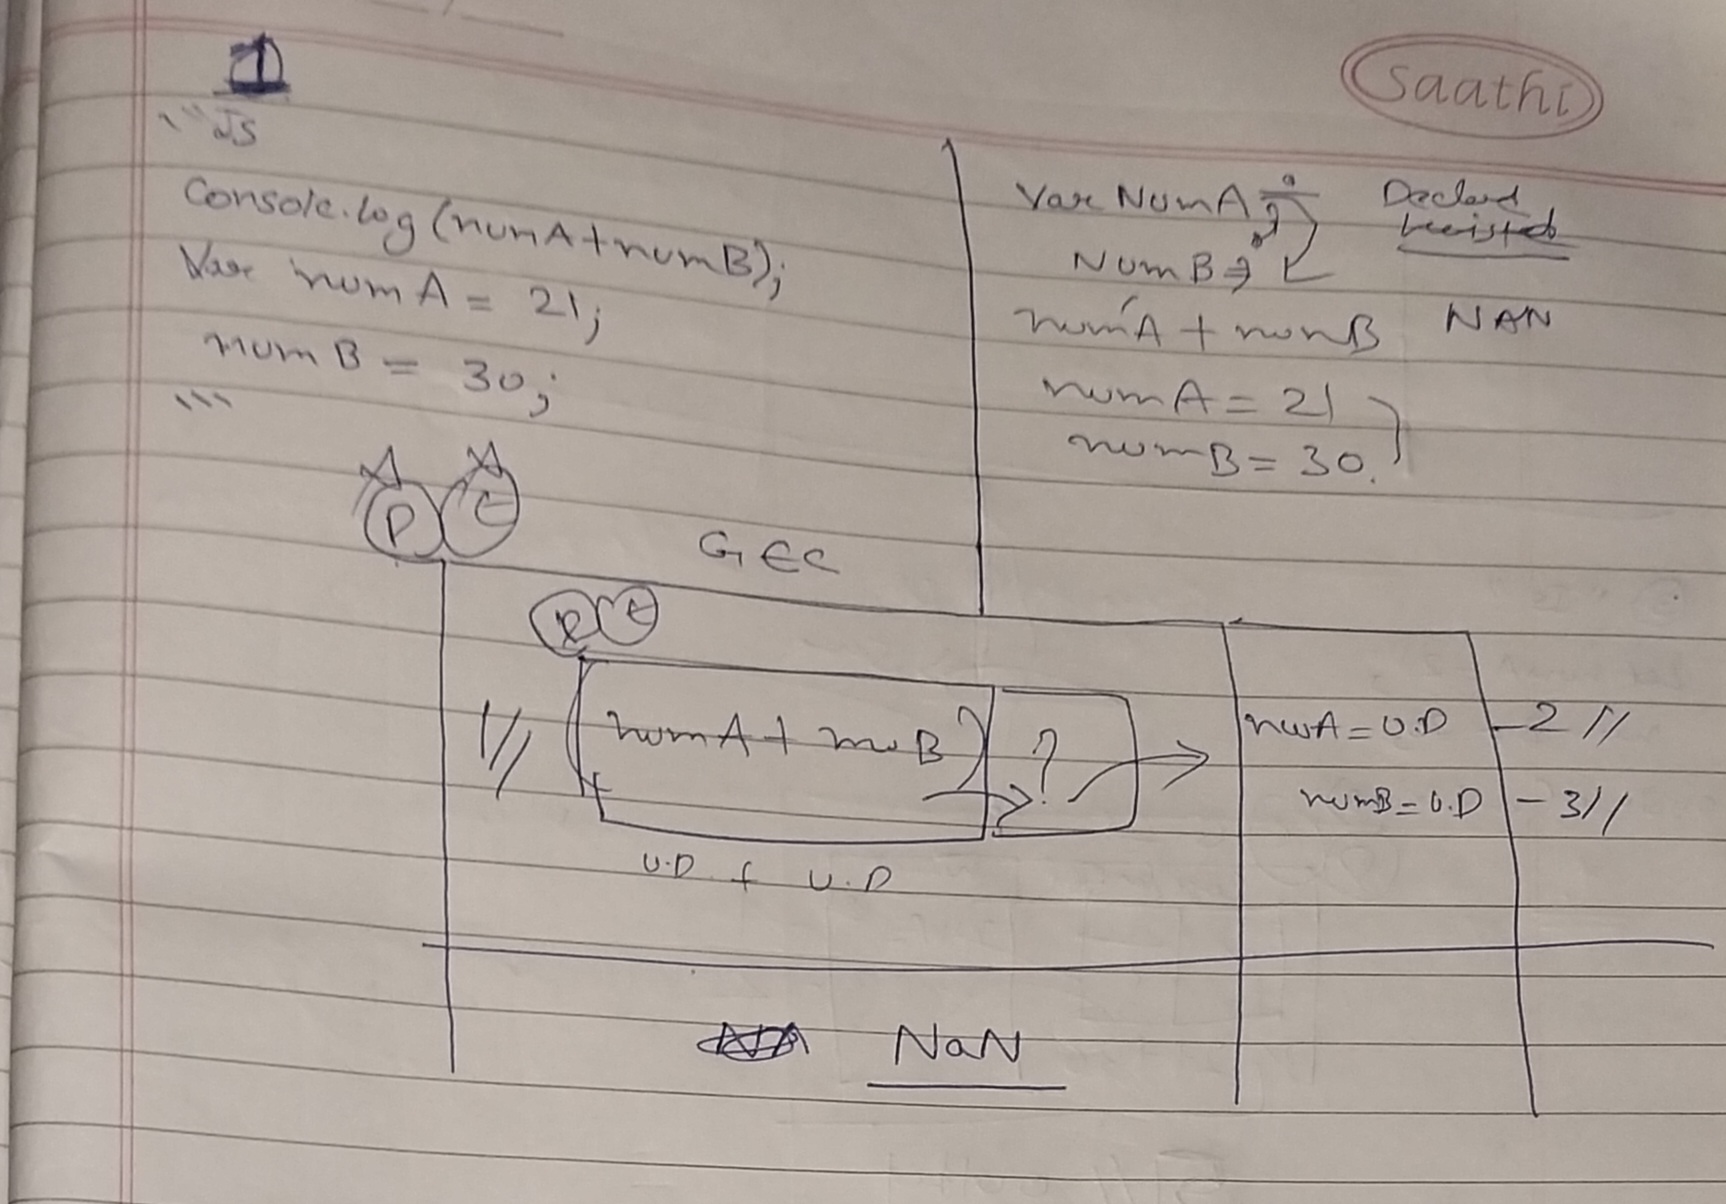 Saathi
1
```JS
Console.log (numA+numB);
Var numA = 21;
numB = 30;
```
Var NumA; Declared
NumB;
numA + numB NAN
numA = 21
numB = 30.
P E
GEC
E
1// (numA + numB) ? numA = U.D - 2//
numB = U.D - 3//
U.D + U.D
NaN